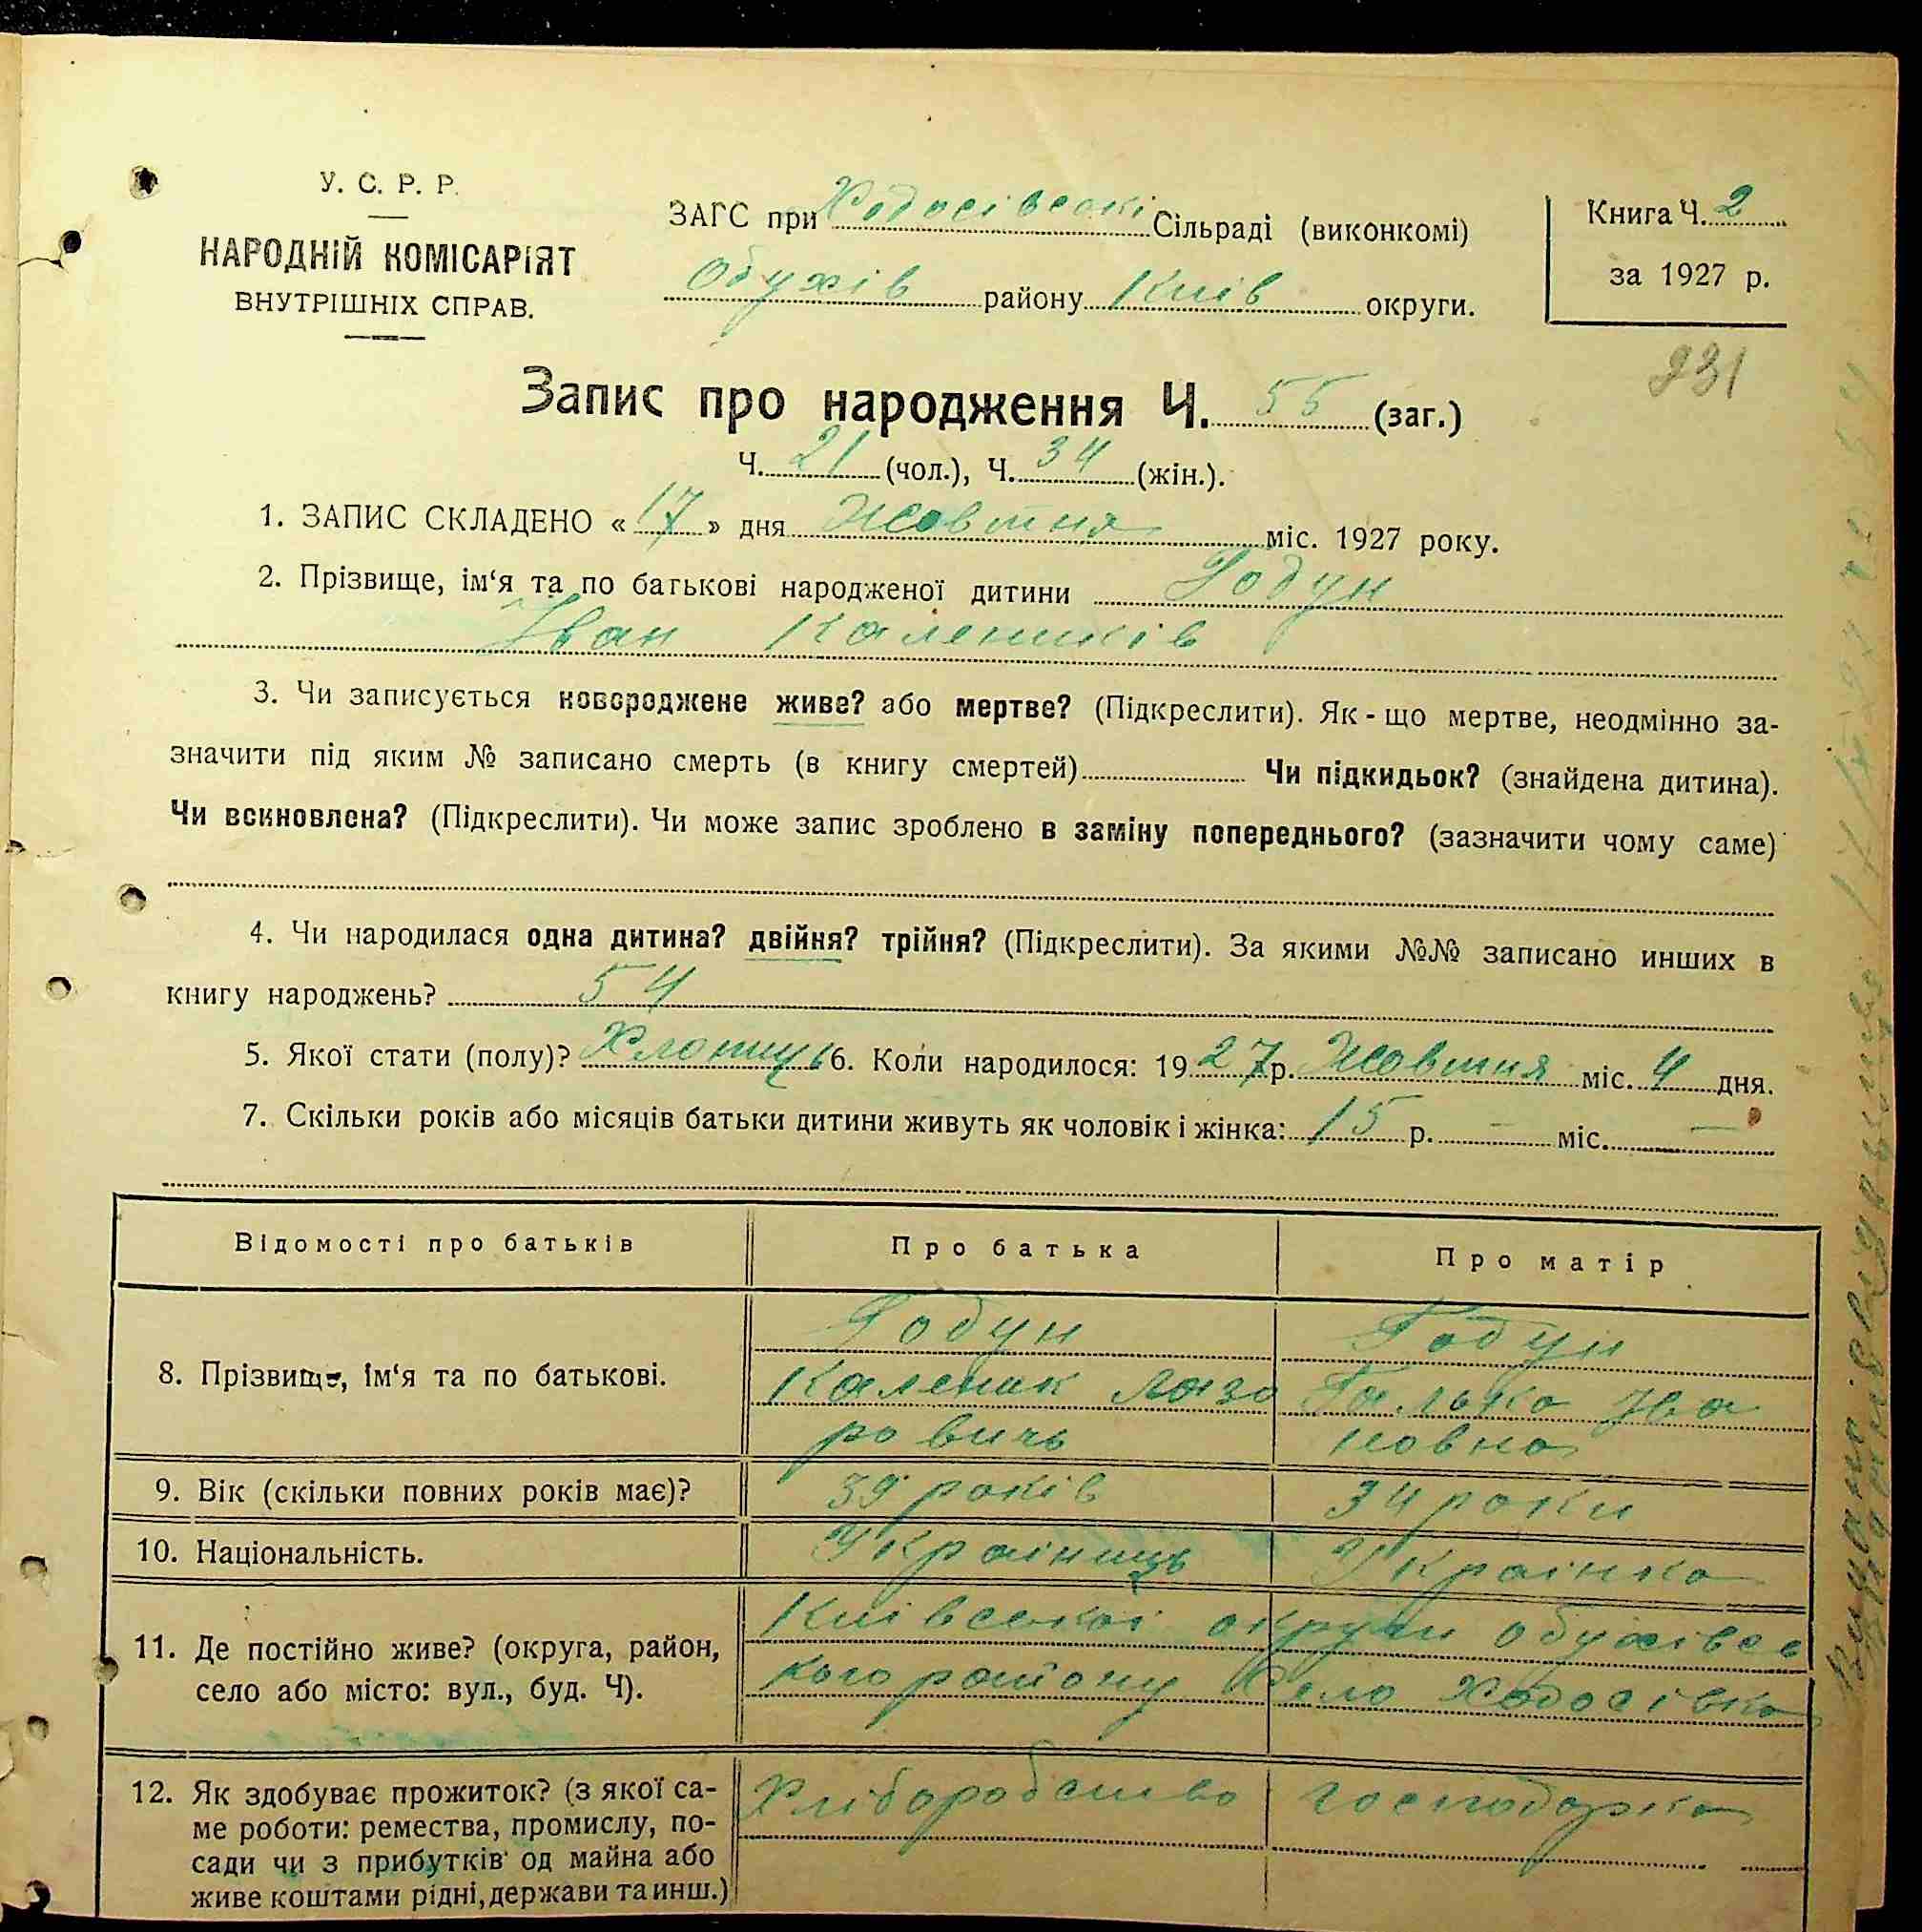 У. С. Р. Р.
НАРОДНІЙ КОМІСАРІЯТ
ВНУТРІШНІХ СПРАВ.
ЗАГС при Ходосівскі Сільраді (виконкомі)
Обухів району Київ округи.
Книга Ч. 2
за 1927 р.
231
Запис про народження Ч. 55 (заг.)
Ч. 21 (чол.), Ч. 34 (жін.).
1. ЗАПИС СКЛАДЕНО « 17 » дня Жовтня міс. 1927 року.
2. Прізвище, ім'я та по батькові народженої дитини Годун
Іван Калеників
3. Чи записується новороджене живе? або мертве? (Підкреслити). Як-що мертве, неодмінно за-
значити під яким № записано смерть (в книгу смертей) Чи підкидьок? (знайдена дитина).
Чи всиновлена? (Підкреслити). Чи може запис зроблено в заміну попереднього? (зазначити чому саме)
4. Чи народилася одна дитина? двійня? трійня? (Підкреслити). За якими №№ записано инших в
книгу народжень? 54
5. Якої стати (полу)? Хлопець 6. Коли народилося: 1927 р. Жовтня міс. 4 дня.
7. Скільки років або місяців батьки дитини живуть як чоловік і жінка: 15 р. — міс. —
Відомості про батьків Про батька Про матір
8. Прізвище, ім'я та по батькові.
Годун
Каленик Лазо
ровичь
Годун
Галька Іва
новна
9. Вік (скільки повних років має)? 39 років 34 роки
10. Національність. Україниць Українка
11. Де постійно живе? (округа, район,
село або місто: вул., буд. Ч).
Київської округи обухівсь
кого району Село Ходосівка
12. Як здобуває прожиток? (з якої са-
ме роботи: ремества, промислу, по-
сади чи з прибутків од майна або
живе коштами рідні, держави та инш.)
Хліборобство господарка